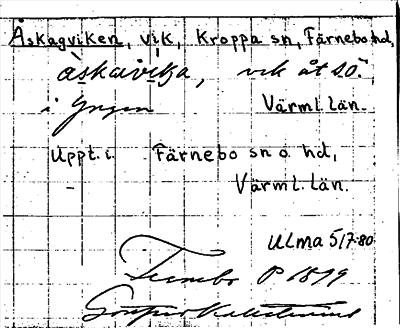 Åskagviken, vik, Kroppa sn, Färnebo hd,
åskavika, vik åt SO.
i Yngen Värml. län.
Uppt. i. Färnebo sn o. hd,
Värml. län.
Ulma 5/7-80
P 1899